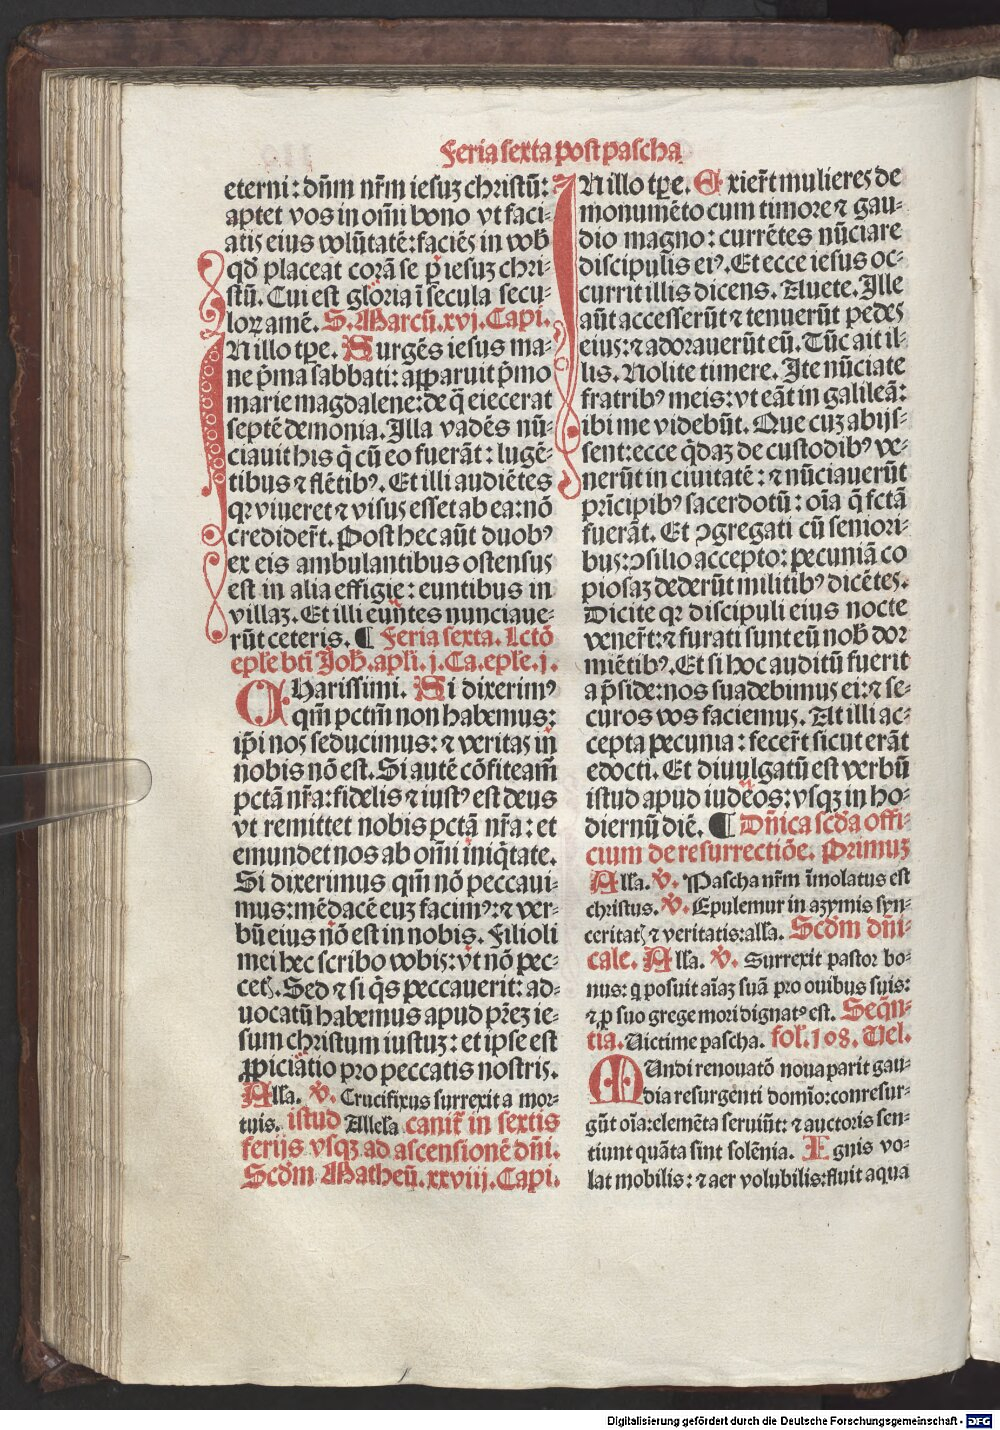 Feria sexta post pascha
eterni: dñm nr̃m iesuʒ christũ:
aptet vos in om̃i bono vt faci-
atis eius volũtatẽ: faciẽs in vob̃
qđ placeat corã se ꝑ iesuʒ chri-
stũ. Cui est gloria ĩ secula secu-
loꝝ amẽ. S. Marcũ. xvj. Capi.
IN illo tꝑe. Surgẽs iesus ma-
ne p̃ma sabbati: aꝑparuit p̃mo
marie magdalene: de q̃ eiecerat
septẽ demonia. Illa vadẽs nũ-
ciauit his q̃ cũ eo fuerãt: lugẽ-
tibus ⁊ flẽtibꝰ. Et illi audiẽtes
qꝛ viueret ⁊ visus esset ab ea: nõ
credider̃t. Post hec aũt duobꝰ
ex eis ambulantibus ostensus
est in alia effigie: euntibus in
villaʒ. Et illi eũtes nunciaue-
rũt ceteris. ¶ Feria sexta. Lctõ
epl̃e bt̃i Joh̃. apl̃i. j. Ca. epl̃e. j.
CHarissimi. Si dixerimꝰ
qm̃ pctm̃ non habemus:
ip̃i nos seducimus: ⁊ veritas in
nobis nõ est. Si autẽ cõfiteam̃
pctã nr̃a: fidelis ⁊ iustꝰ est deus
vt remittet nobis pctã nr̃a: et
emundet nos ab om̃i iniq̃tate.
Si dixerimus qm̃ nõ peccaui-
mus: mẽdacẽ euʒ facimꝰ: ⁊ ver-
bũ eius nõ est in nobis. Filioli
mei hec scribo vobis: vt nõ pec-
cetꝭ. Sed ⁊ si q̃s peccauerit: ad-
uocatũ habemus apud pr̃eʒ ie-
sum christum iustuʒ: et ipse est
ꝓpiciatio pro peccatis nostris.
Alĺa. ℣. Crucifixus surrexit a mor-
tuis. istud Allel̃a canit̃ in sextis
ferijs vsqʒ ad ascensionẽ dñi.
Scd̃m Matheũ. xxviij. Capi.
IN illo tꝑe. Exier̃t mulieres de
monumẽto cum timore ⁊ gau-
dio magno: currẽtes nũciare
discipulis eiꝰ. Et ecce iesus oc-
currit illis dicens. Auete. Ille
aũt accesserũt ⁊ tenuerũt pedes
eius: ⁊ adorauerũt eũ. Tũc ait il-
lis. Nolite timere. Ite nũciate
fratribꝰ meis: vt eãt in galileã:
ibi me videbũt. Que cuʒ abijs-
sent: ecce q̃daʒ de custodibꝰ ve-
nerũt in ciuitatẽ: ⁊ nũciauerũt
prĩcipibꝰ sacerdotũ: oĩa q̃ fctã
fuerãt. Et ꝯgregati cũ seniori-
bus: ꝯsilio accepto: pecuniã co
piosaʒ dederũt militibꝰ dicẽtes.
Dicite qꝛ discipuli eius nocte
vener̃t: ⁊ furati sunt eũ nob̃ dor
miẽtibꝰ. Et si hoc auditũ fuerit
a p̃side: nos suadebimus ei: ⁊ se-
curos vos faciemus. At illi ac-
cepta pecunia: fecer̃t sicut erãt
edocti. Et diuulgatũ est verbũ
istud apud iudeos: vsqʒ in ho-
diernũ diẽ. ¶ Dñica scd̃a offi-
cium de resurrectiõe. Primus
Alĺa. ℣. Pascha nr̃m ĩmolatus est
christus. ℣. Epulemur in azymis syn-
ceritatꝭ ⁊ veritatis: alĺa. Scd̃m dñi-
cale. Alĺa. ℣. Surrexit pastor bo-
nus: q posuit aĩaʒ suã pro ouibus suis:
⁊ ꝑ suo grege mori dignatꝰ est. Seq̃n-
tia. Victime pascha. fol. 108. Vel.
MUndi renouatõ noua parit gau-
dia resurgenti domĩo: conresur-
gũt oĩa: elemẽta seruiũt: ⁊ auctoris sen-
tiunt quãta sint solẽnia. Ignis vo-
lat mobilis: ⁊ aer volubilis: fluit aqua
Digitalisierung gefördert durch die Deutsche Forschungsgemeinschaft - DFG